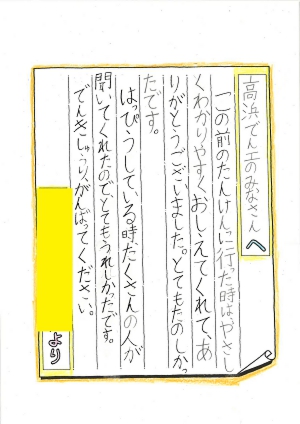 高浜でん工のみなさんへ
この前のたんけんに行った時はやさし
くわかりやすくおしえてくれて、あ
りがとうございました。とてもたのしかっ
たです。
はっぴょうしている時、たくさんの人が
聞いてくれたのでとてもうれしかったです。
でんきしゅうり、がんばってください。
より